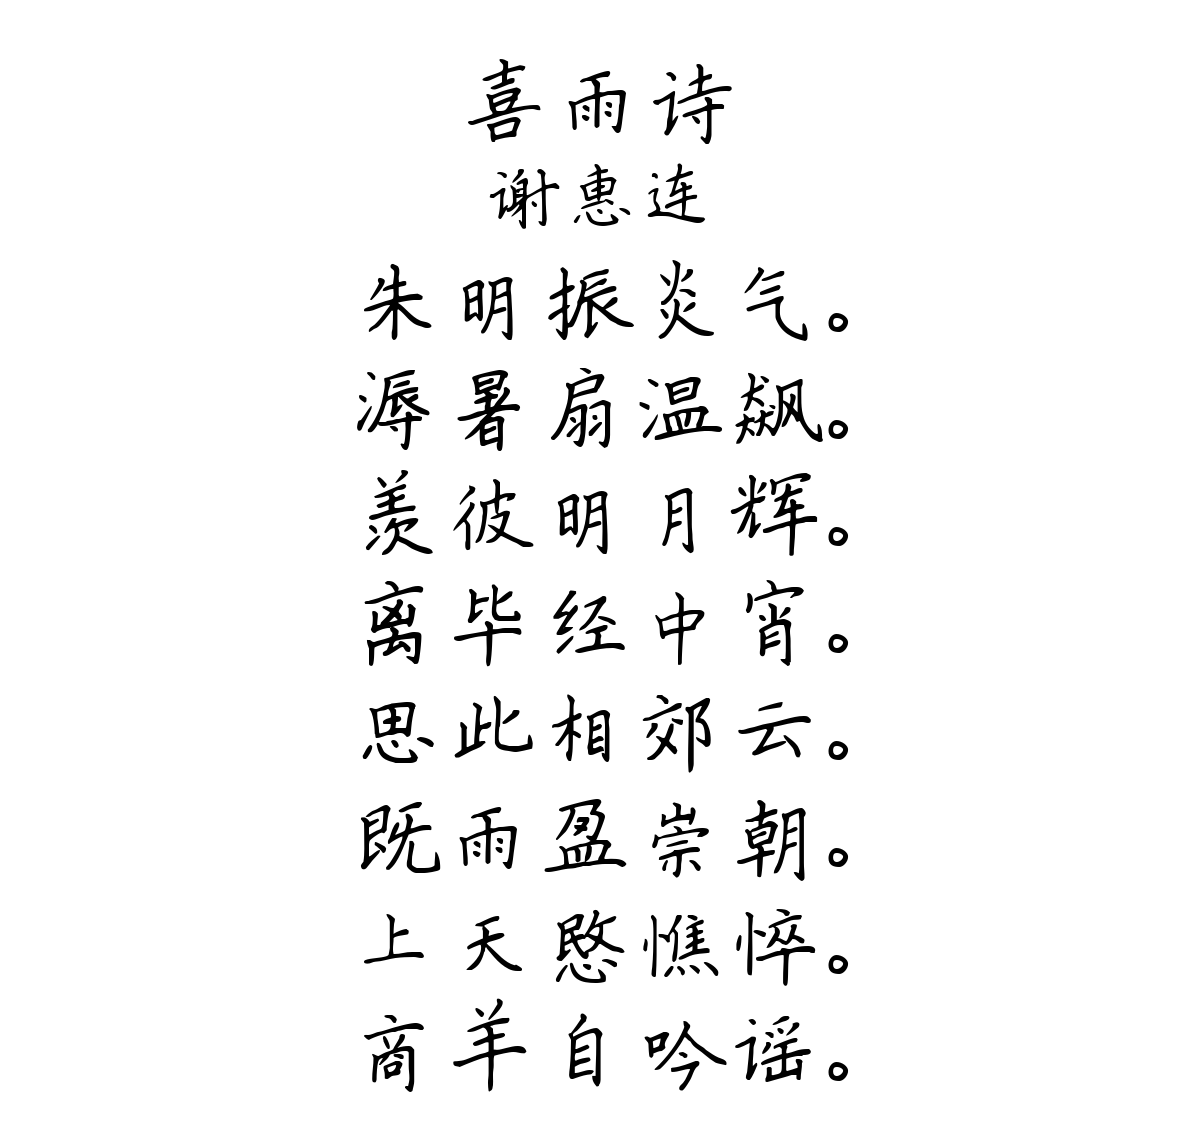 喜雨诗
谢惠连
朱明振炎气。
溽暑扇温飙。
羡彼明月辉。
离毕经中宵。
思此相郊云。
既雨盈崇朝。
上天愍憔悴。
商羊自吟谣。